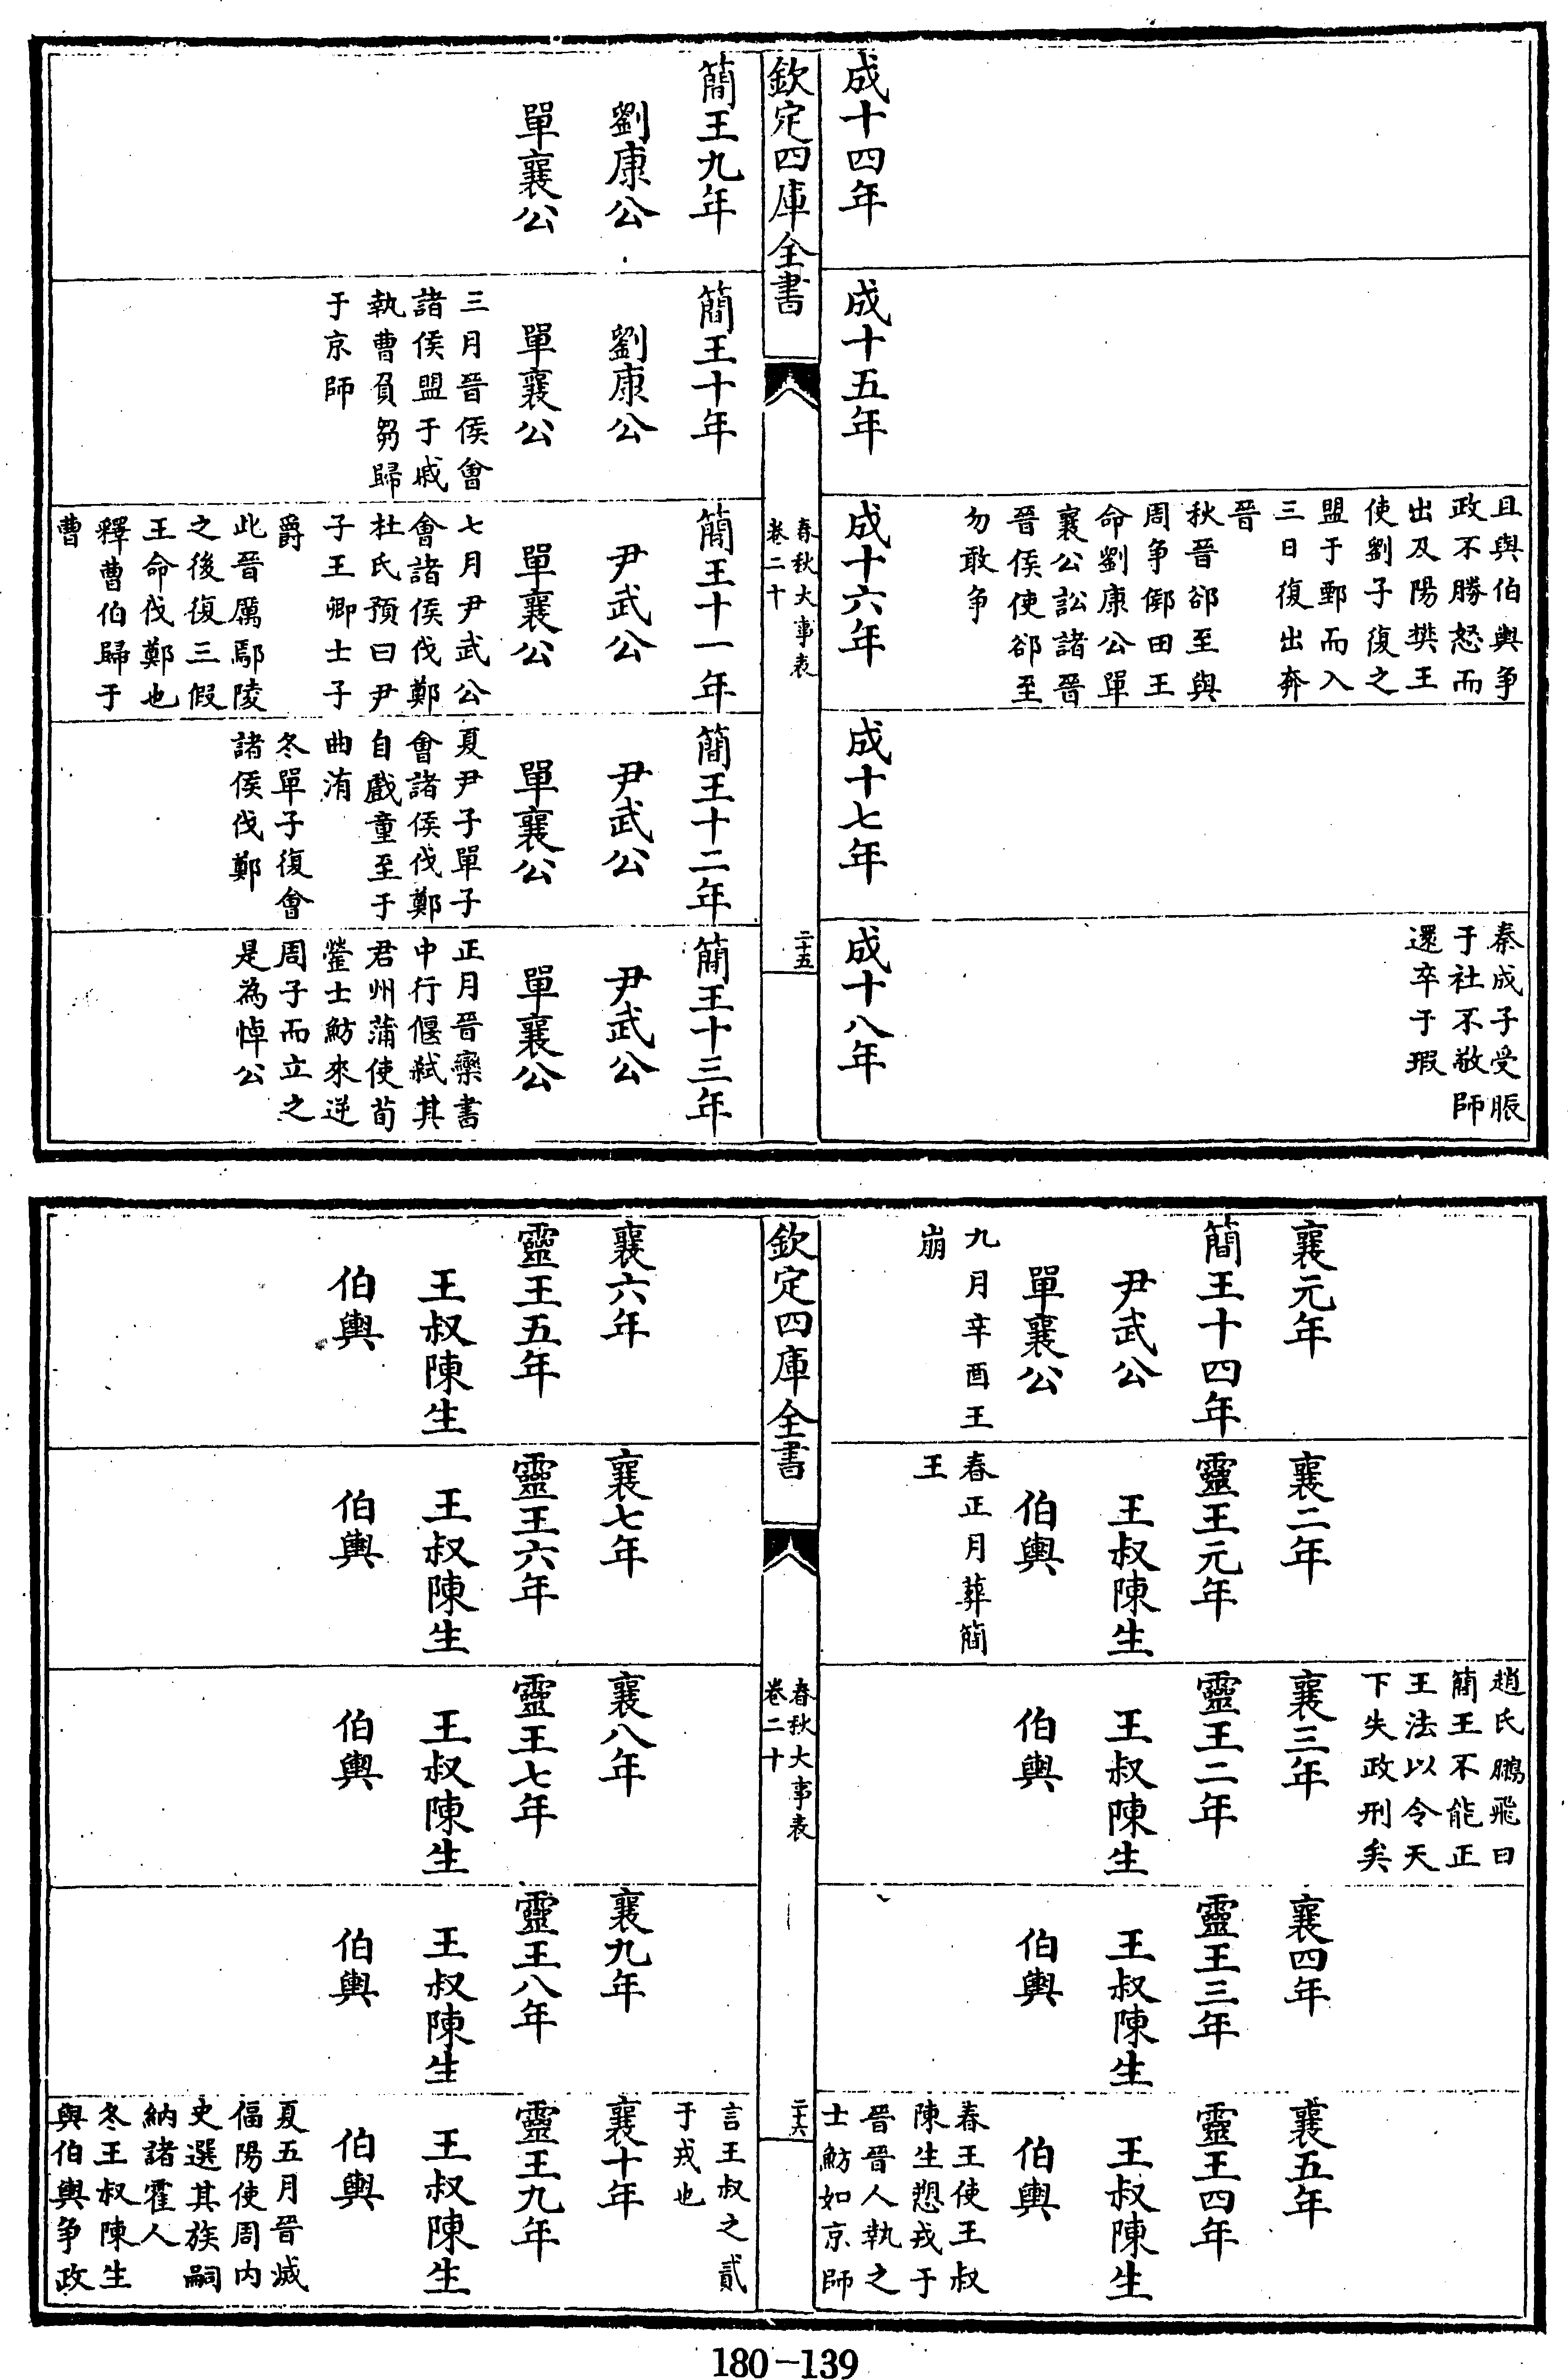 欽定四庫全書
春秋大事表
卷二十
二十五
成十四年
簡王九年
劉康公
單襄公
成十五年
簡王十年
劉康公
單襄公
三月晉侯會
諸侯盟于戚
執曹負芻歸
于京師
且與伯輿爭
政不勝怒而
出及陽樊王
使劉子復之
盟于鄄而入
三日復出奔
晉
秋晉郤至與
周爭鄇田王
命劉康公單
襄公訟諸晉
晉侯使郤至
勿敢爭
成十六年
簡王十一年
尹武公
單襄公
七月尹武公
會諸侯伐鄭
杜氏預曰尹
子王卿士子
爵
此晉厲鄢陵
之後復三假
王命伐鄭也
釋曹伯歸于
曹
成十七年
簡王十二年
尹武公
單襄公
夏尹子單子
會諸侯伐鄭
自戲童至于
曲洧
冬單子復會
諸侯伐鄭
秦成子受脤
于社不敬師
還卒于瑕
成十八年
簡王十三年
尹武公
單襄公
正月晉欒書
中行偃弑其
君州蒲使荀
罃士魴來逆
周子而立之
是為悼公
欽定四庫全書
春秋大事表
卷二十
二十六
襄元年
簡王十四年
尹武公
單襄公
九月辛酉王
崩
襄六年
靈王五年
王叔陳生
伯輿
襄二年
靈王元年
王叔陳生
伯輿
春正月葬簡
王
襄七年
靈王六年
王叔陳生
伯輿
趙氏鵬飛曰
簡王不能正
王法以令天
下失政刑矣
襄三年
靈王二年
王叔陳生
伯輿
襄八年
靈王七年
王叔陳生
伯輿
襄四年
靈王三年
王叔陳生
伯輿
襄九年
靈王八年
王叔陳生
伯輿
襄五年
靈王四年
王叔陳生
伯輿
春王使王叔
陳生愬戎于
晉晉人執之
士魴如京師
言王叔之貳
于戎也
襄十年
靈王九年
王叔陳生
伯輿
夏五月晉滅
偪陽使周内
史選其族嗣
納諸霍人
冬王叔陳生
與伯輿爭政
180-139